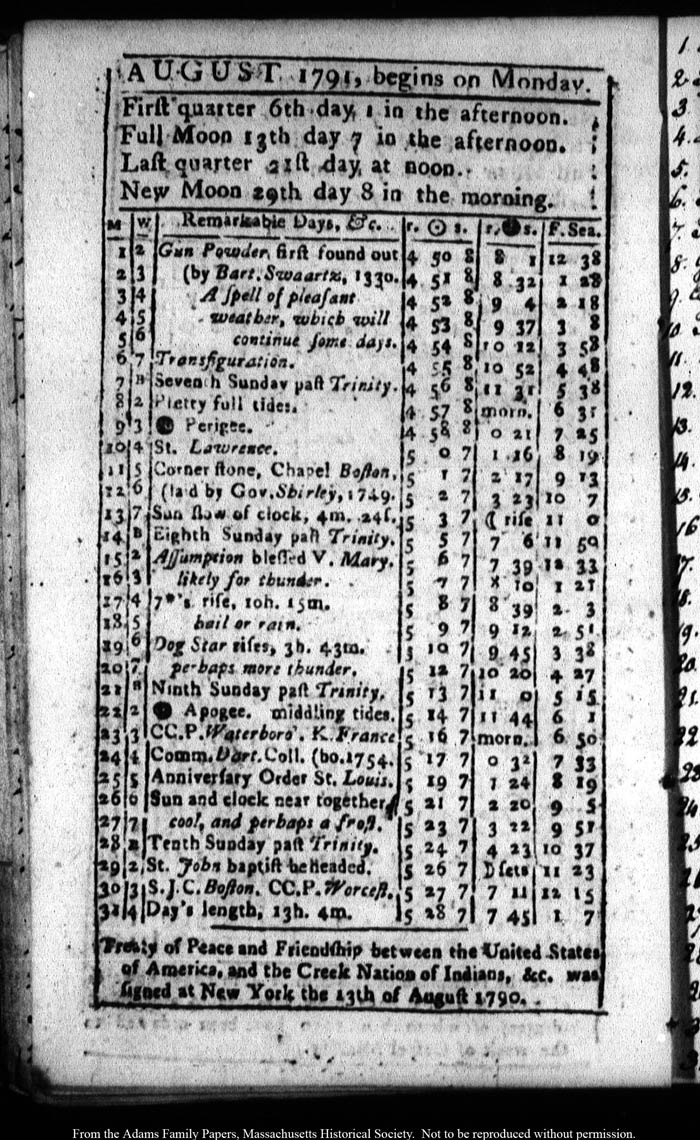 AUGUST 1791, begins on Monday.
Firſt quarter 6th day, 1 in the afternoon.
Full Moon 13th day 7 in the afternoon.
Laſt quarter 21ſt day, at noon.
New Moon 29th day 8 in the morning.
M W Remarkable Days, &c. r. ☉ s. r. ● s. F. Sea.
1 2 Gun Powder, firſt found out 4 50 8 8 1 12 38
2 3 (by Bart. Swaartz, 1330. 4 51 8 8 32 1 28
3 4 A ſpell of pleaſant 4 52 8 9 4 2 18
4 5 weather, which will 4 53 8 9 37 3 8
5 6 continue ſome days. 4 54 8 10 12 3 58
6 7 Transfiguration. 4 55 8 10 52 4 48
7 B Seventh Sunday paſt Trinity. 4 56 8 11 31 5 38
8 2 Pretty full tides. 4 57 8 morn. 6 31
9 3 ● Perigee. 4 58 8 0 21 7 25
10 4 St. Lawrence. 5 0 7 1 16 8 19
11 5 Corner ſtone, Chapel Boſton, 5 1 7 2 17 9 13
12 6 (laid by Gov. Shirley, 1749. 5 2 7 3 23 10 7
13 7 Sun ſlow of clock, 4m. 24ſ. 5 3 7 ☾ riſe 11 0
14 B Eighth Sunday paſt Trinity. 5 5 7 7 6 11 50
15 2 Aſſumption bleſſed V. Mary. 5 6 7 7 39 12 33
16 3 likely for thunder. 5 7 7 8 10 1 21
17 4 7*'s. riſe, 10h. 15m. 5 8 7 8 39 2 3
18 5 hail or rain. 5 9 7 9 12 2 51
19 6 Dog Star riſes, 3h. 43m. 5 10 7 9 45 3 38
20 7 perhaps more thunder. 5 12 7 10 20 4 27
21 B Ninth Sunday paſt Trinity. 5 13 7 11 0 5 15
22 2 ● Apogee. middling tides. 5 14 7 11 44 6 1
23 3 CC.P. Waterboro'. K. France 5 16 7 morn. 6 50
24 4 Comm. Dart. Coll. (bo. 1754. 5 17 7 0 32 7 33
25 5 Anniverſary Order St. Louis. 5 19 7 1 24 8 19
26 6 Sun and clock near together, 5 21 7 2 20 9 5
27 7 cool, and perhaps a froſt. 5 23 7 3 22 9 51
28 B Tenth Sunday paſt Trinity. 5 24 7 4 23 10 37
29 2 St. John baptiſt beheaded. 5 26 7 D ſets 11 23
30 3 S.J.C. Boſton. CC.P. Worceſt. 5 27 7 7 11 12 15
31 4 Day's length, 13h. 4m. 5 28 7 7 45 1 7
Treaty of Peace and Friendſhip between the United States
of America, and the Creek Nation of Indians, &c. was
ſigned at New York the 13th of Auguſt 1790.
From the Adams Family Papers, Massachusetts Historical Society. Not to be reproduced without permission.